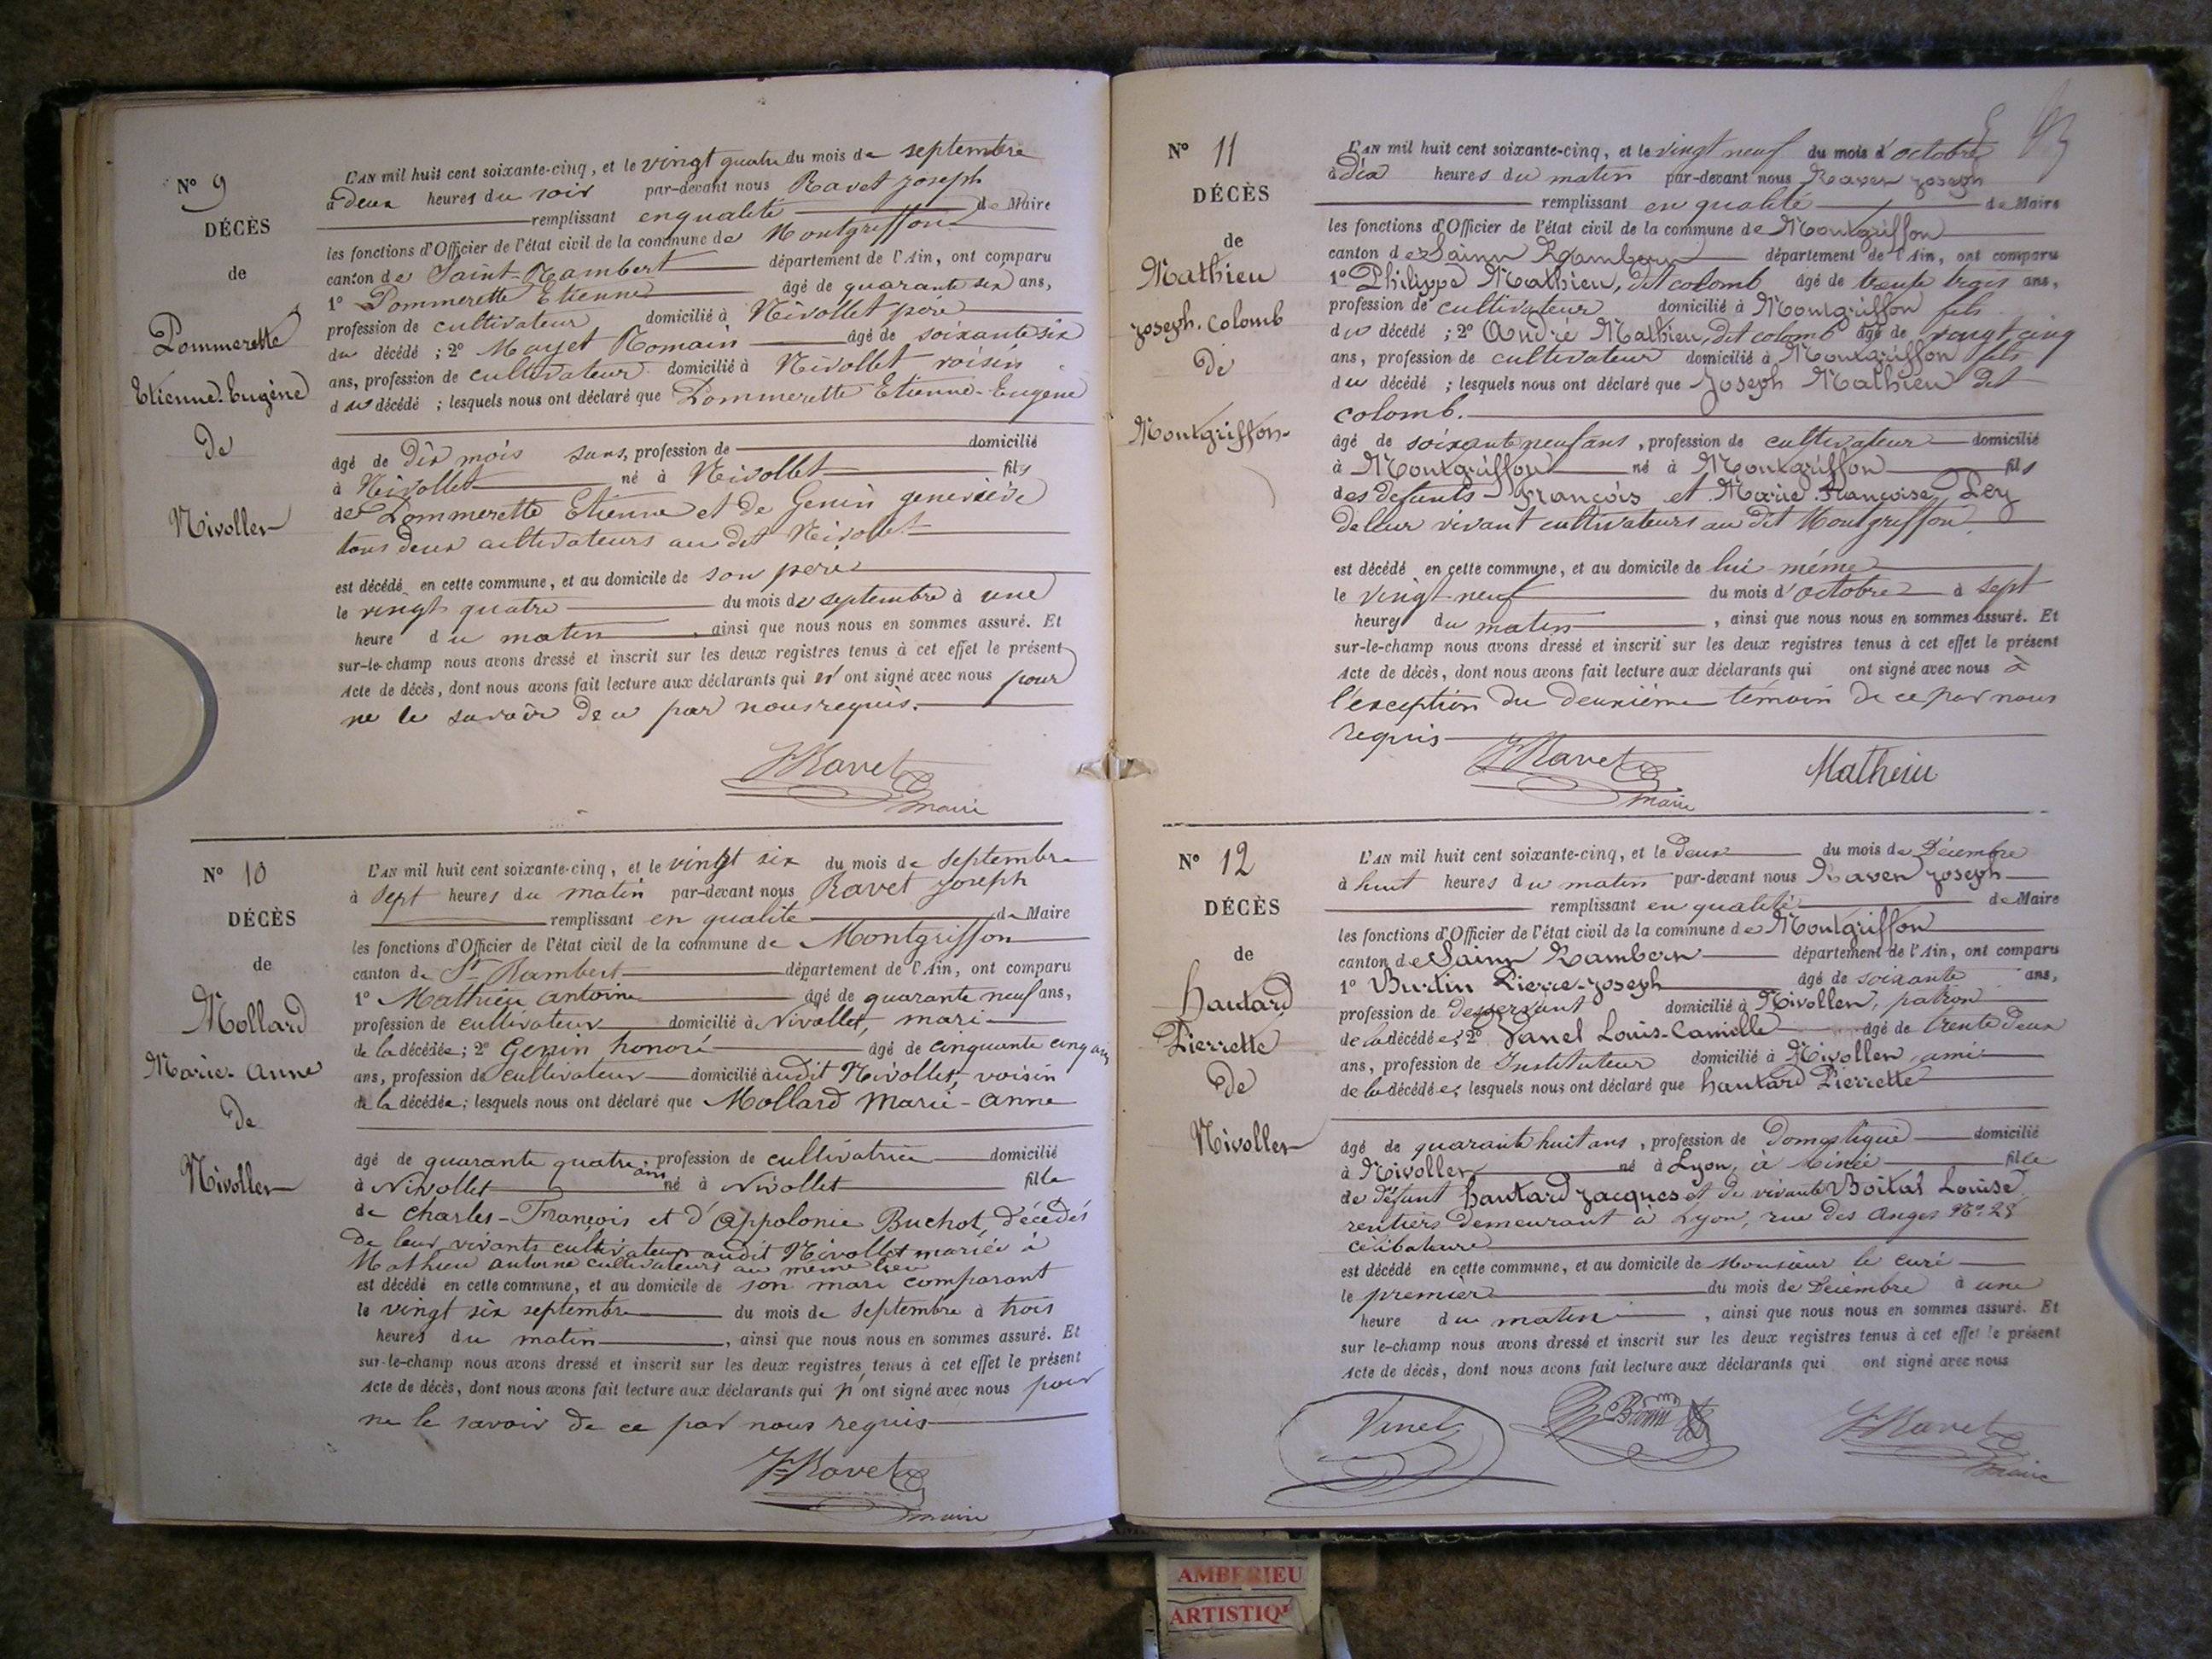 Nº 9
DÉCÈS
de
Pommerette
Etienne-Eugène
de
Nivollet
L'AN mil huit cent soixante-cinq, et le vingt quatre du mois de septembre
à deux heures du soir par-devant nous Ravet Joseph
remplissant en qualité de Maire
les fonctions d'Officier de l'état civil de la commune de Montgriffon
canton de Saint-Rambert département de l'Ain, ont comparu
1º Pommerette Etienne âgé de quarante six ans,
profession de cultivateur domicilié à Nivollet père
du décédé ; 2º Moyet Romain âgé de soixante six
ans, profession de cultivateur domicilié à Nivollet voisin
du décédé ; lesquels nous ont déclaré que Pommerette Etienne-Eugène
âgé de dix mois sans, profession de domicilié
à Nivollet né à Nivollet fils
de Pommerette Etienne et de Genin geneviève
tous deux cultivateurs au dit Nivollet
est décédé en cette commune, et au domicile de son père
le vingt quatre du mois de septembre à une
heure du matin, ainsi que nous nous en sommes assuré. Et
sur-le-champ nous avons dressé et inscrit sur les deux registres tenus à cet effet le présent
Acte de décès, dont nous avons fait lecture aux déclarants qui n'ont signé avec nous pour
ne le savoir de ce par nous requis.
J Ravet
maire
Nº 10
DÉCÈS
de
Mollard
Marie-Anne
de
Nivollet
L'AN mil huit cent soixante-cinq, et le vingt six du mois de septembre
à sept heures du matin par-devant nous Ravet Joseph
remplissant en qualité de Maire
les fonctions d'Officier de l'état civil de la commune de Montgriffon
canton de St Rambert département de l'Ain, ont comparu
1º Mathieu antoine âgé de quarante neuf ans,
profession de cultivateur domicilié à Nivollet, mari
de la décédée; 2º Genin honoré âgé de cinquante cinq ans
ans, profession de cultivateur domicilié audit Nivollet, voisin
de la décédée; lesquels nous ont déclaré que Mollard Marie-Anne
âgé de quarante quatre ans, profession de cultivatrice domicilié
à Nivollet né à Nivollet fille
de Charles-François et d'Appolonie Buchot, décédés
de leur vivants cultivateurs audit Nivollet mariée à
Mathieu antoine cultivateurs au même lieu
est décédé en cette commune, et au domicile de son mari comparant
le vingt six septembre du mois de septembre à trois
heures du matin, ainsi que nous nous en sommes assuré. Et
sur-le-champ nous avons dressé et inscrit sur les deux registres tenus à cet effet le présent
Acte de décès, dont nous avons fait lecture aux déclarants qui n'ont signé avec nous pour
ne le savoir de ce par nous requis
J Ravet
maire
Nº 11
DÉCÈS
de
Mathieu
Joseph. Colomb
de
Montgriffon
L'AN mil huit cent soixante-cinq, et le vingt neuf du mois d'octobre
à dix heures du matin par-devant nous Ravet Joseph
remplissant en qualité de Maire
les fonctions d'Officier de l'état civil de la commune de Montgriffon
canton de Saint Rambert département de l'Ain, ont comparu
1º Philippe Mathieu, dit colomb âgé de trente trois ans,
profession de cultivateur domicilié à Montgriffon fils
du décédé ; 2º André Mathieu, dit colomb âgé de vingt cinq
ans, profession de cultivateur domicilié à Montgriffon fils
du décédé ; lesquels nous ont déclaré que Joseph Mathieu dit
colomb.
âgé de soixante neuf ans, profession de cultivateur domicilié
à Montgriffon né à Montgriffon fils
des defunts François et Marie Françoise Pey
de leur vivant cultivateurs au dit Montgriffon
est décédé en cette commune, et au domicile de lui même
le vingt-neuf du mois d'octobre à sept
heures du matin, ainsi que nous nous en sommes assuré. Et
sur-le-champ nous avons dressé et inscrit sur les deux registres tenus à cet effet le présent
Acte de décès, dont nous avons fait lecture aux déclarants qui ont signé avec nous à
l'exception du deuxième témoin de ce par nous
requis
J Ravet
maire
Mathieu
Nº 12
DÉCÈS
de
hautard
Pierrette
de
Nivollet
L'AN mil huit cent soixante-cinq, et le deux du mois de Décembre
à huit heures du matin par-devant nous Ravet Joseph
remplissant en qualité de Maire
les fonctions d'Officier de l'état civil de la commune de Montgriffon
canton de Saint Rambert département de l'Ain, ont comparu
1º Burtin Pierre-Joseph âgé de soixante ans,
profession de desservant domicilié à Nivollet, patron
de la décédée; 2º Vanel Louis-Camille âgé de trente deux
ans, profession de Instituteur domicilié à Nivollet, ami
de la décédée; lesquels nous ont déclaré que hautard Pierrette
âgé de quarante huit ans, profession de Domestique domicilié
à Nivollet né à Lyon, à fille
de défunt hautard Jacques et de vivante Boital Louise
rentiers demeurant à Lyon, rue des Anges Nº 28
célibataire
est décédé en cette commune, et au domicile de Monsieur le curé
le premier du mois de Décembre à une
heure du matin, ainsi que nous nous en sommes assuré. Et
sur le-champ nous avons dressé et inscrit sur les deux registres tenus à cet effet le présent
Acte de décès, dont nous avons fait lecture aux déclarants qui ont signé avec nous
Vanel
J Ravet
maire
AMBERIEU
ARTISTIQUE